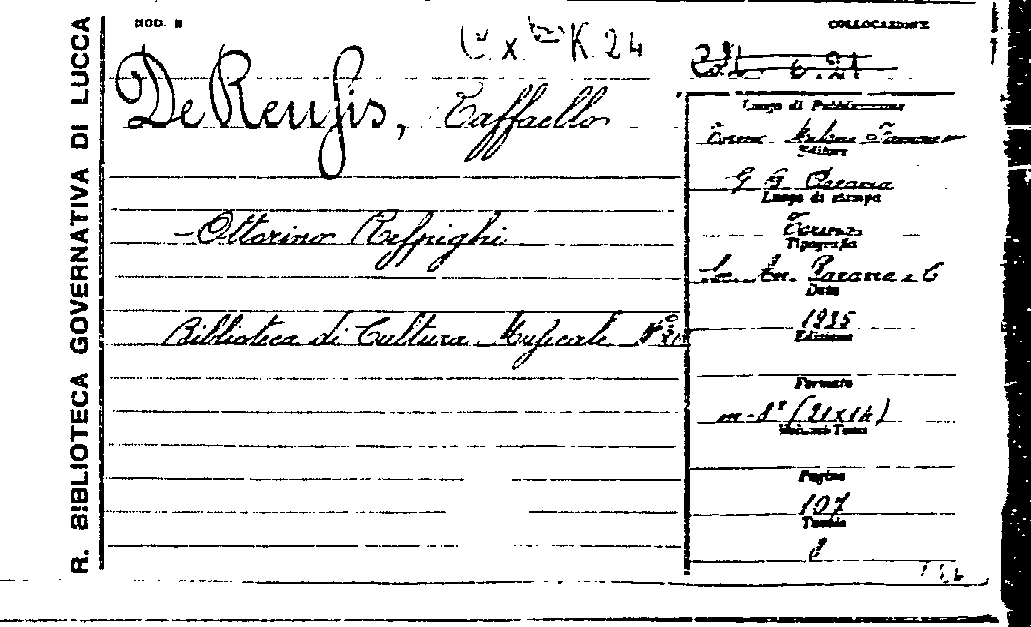 R. BIBLIOTECA GOVERNATIVA DI LUCCA
MOD. B
COLLOCAZIONE
K 24
De Renſis, Raffaello
- Ottorino Reſpighi
Biblioteca di Cultura Muſicale
Luogo di Pubblicazione
Torino Milano
Editore
G B Paravia
Luogo di stampa
Torino
Tipografia
Soc. An. Paravia e C
Data
1935
Edizione
Formato
in-8° (21x14)
Volume Tomo
Pagine
107
Tavole